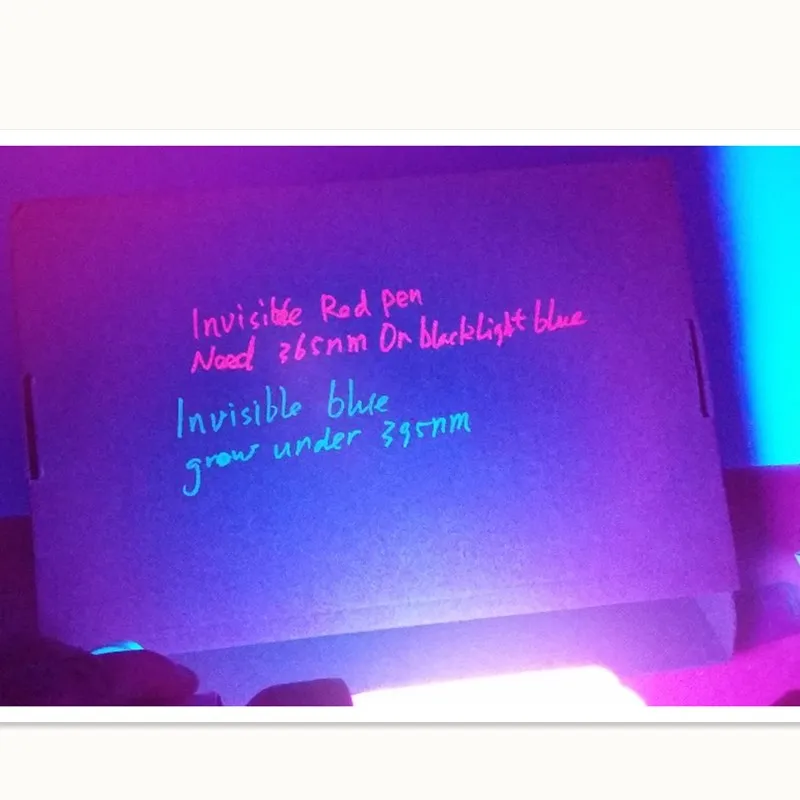 Invisible Red pen
Need 365nm Or blacklight blue
Invisible blue
grow under 395nm